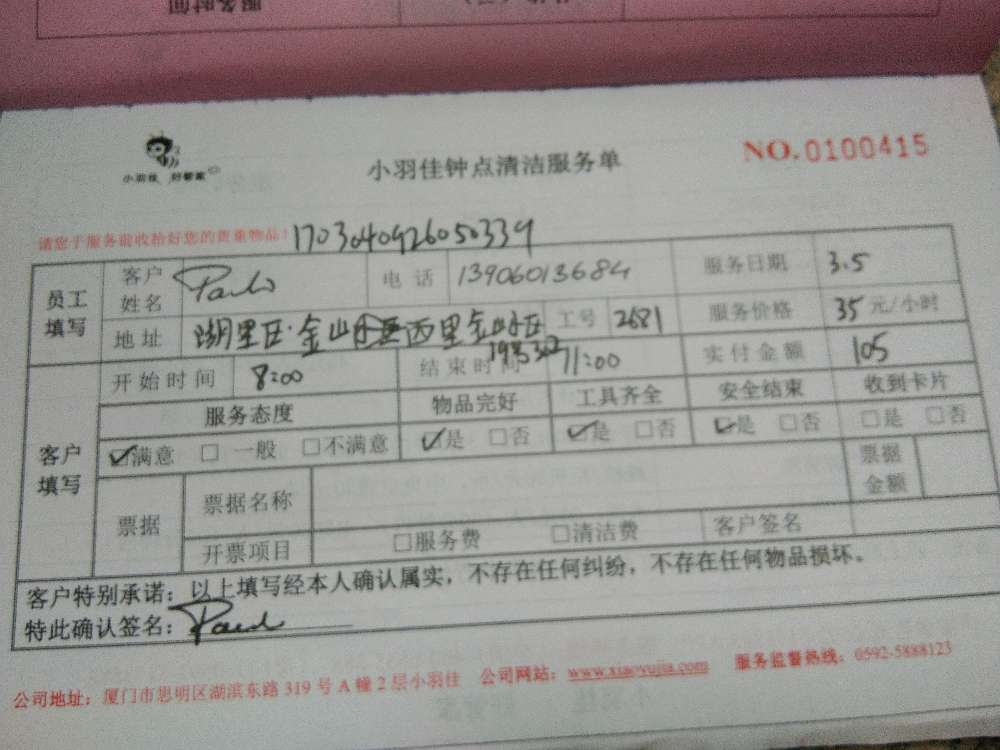 服务时间
小羽佳 好管家
小羽佳钟点清洁服务单
NO.0100415
请您于服务前收拾好您的贵重物品!
1703040926050339
员工填写 客户姓名 Paulo 电 话 13906013684 服务日期 3.5
地址 湖里区·金山 西里 工号 2681 服务价格 35 元/小时
客户填写 开始时间 8:00 结束时间 11:00 实付金额 105
服务态度 物品完好 工具齐全 安全结束 收到卡片
☑满意 □ 一般 □不满意 ☑是 □否 ☑是 □否 ☑是 □否 □是 □否
票据 票据名称 票据金额
开票项目 □服务费 □清洁费 客户签名
客户特别承诺:以上填写经本人确认属实,不存在任何纠纷,不存在任何物品损坏。
特此确认签名:Paulo
公司地址:厦门市思明区湖滨东路 319 号 A 幢 2 层小羽佳 公司网站:www.xiaoyujia.com 服务监督热线:0592-5888123